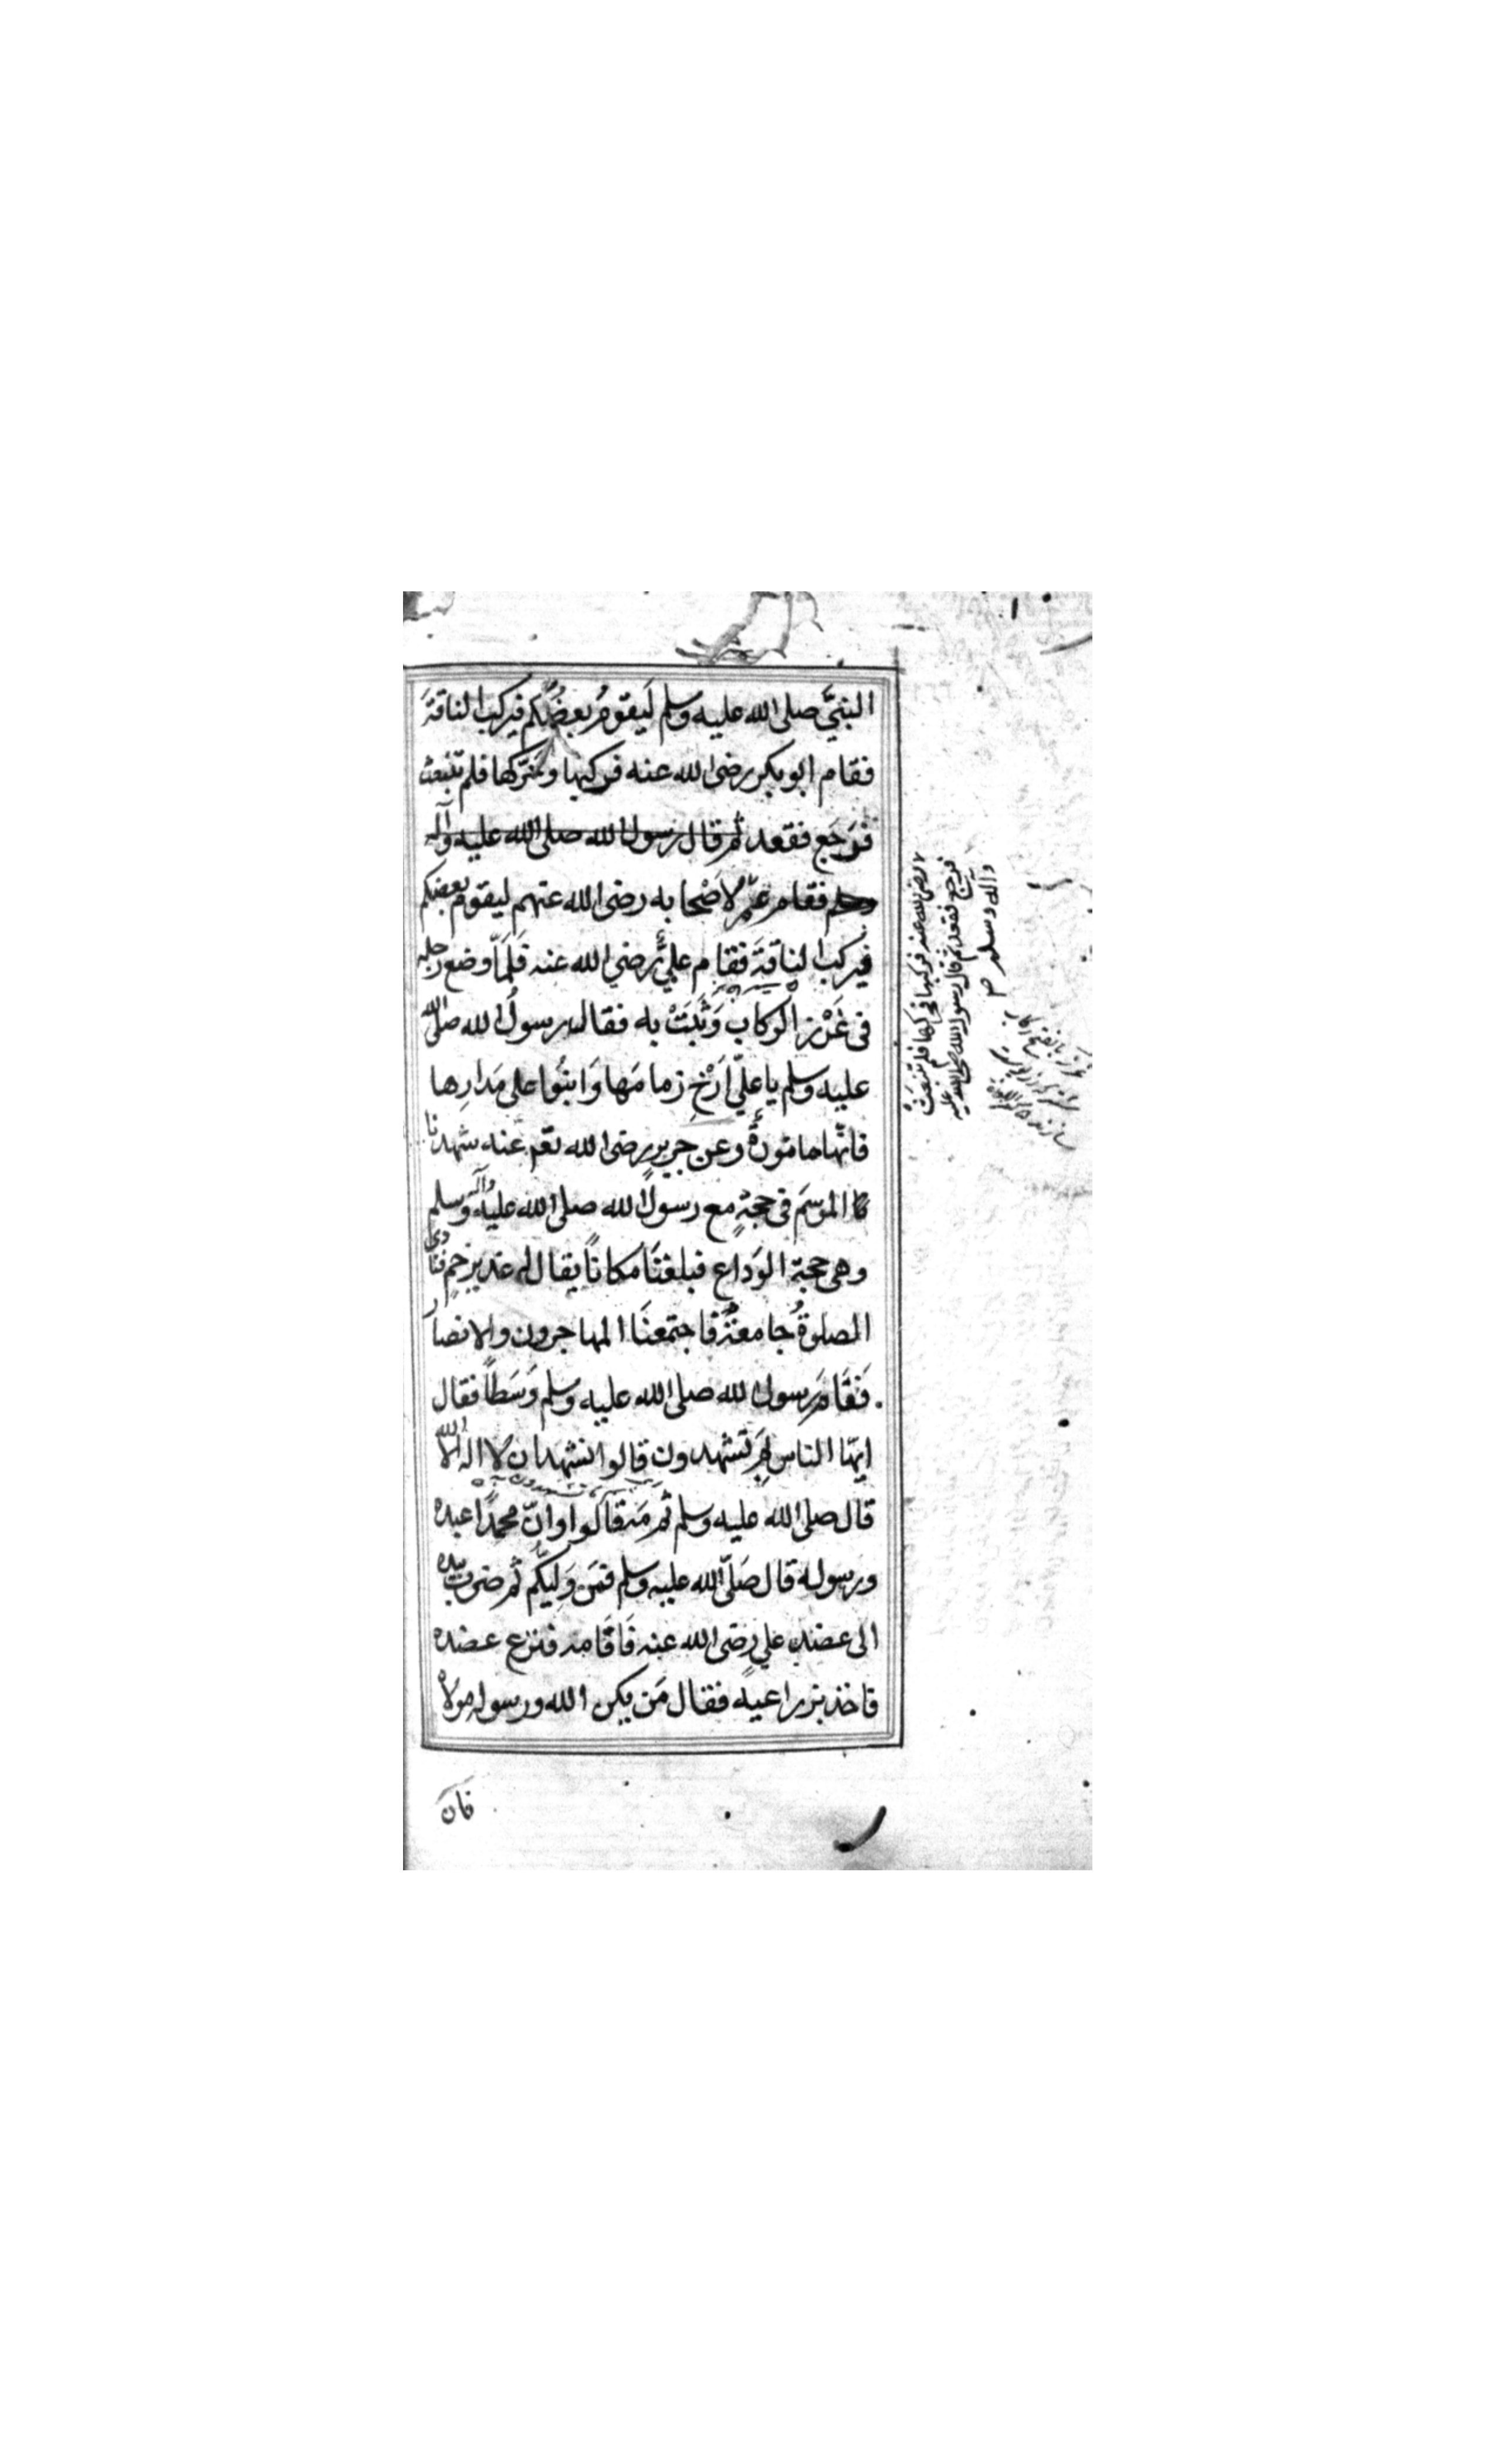 النبيَّ صلى الله عليه وسلم لَيقومُ بعضُكم فيركب الناقةَ
فقام ابو بكر رضى الله عنه فركبها وحَرّكها فلم تنبعث
فرَجَع فقعد ثم قال رسول الله صلى الله عليه وآله
وسلم فقام عمر لاصْحابه رضى الله عنهم ليقوم بعضكم
فيركب الناقةَ فقام عليٌّ رضي الله عنه فَلَمّا وضع رجله
فى غَرْزِ الركاب وَثَبَتْ به فقال رسولُ الله صلى الله
عليه وسلم يا عليّ اَرْخِ زمامَها وَابنُوا على مَدارِها
فانّها مامُورةٌ وعن جريرٍ رضى الله تعم عنه شهدنا
كا الموسَم فى حجةٍ مع رسول الله صلى الله عليه وآله وسلم
وهى حجة الوَداع فبلغنَا مكانًا يقال له غدير خمٍ فنادى
الصلوةُ جامعةٌ فاجتمعنَا المهاجرون والانصار
فَقَامَ رسول الله صلى الله عليه وسلم وَسَطًا فقال
ايّها الناس بِمَ تشهدون قالوا نشهد ان لا اله الا الله
قال صلى الله عليه وسلم ثم مَه قالوا وانّ محمدًا عبده
ورسوله قال صَلّى الله عليه وسلم فمَن وَلِيّكُم ثم ضرب بيده
الى عضدِ عليٍ رضى الله عنه فَاَقَامه فنزع عضده
فاخذ بذراعيه فقال مَن يكن الله ورسوله مولاهُ
فان
رضى الله عنه فركبها فحركها فلم تنبَعث
فرجع فقعد ثم قال رسول الله صلى الله عليه
وآله وسلم